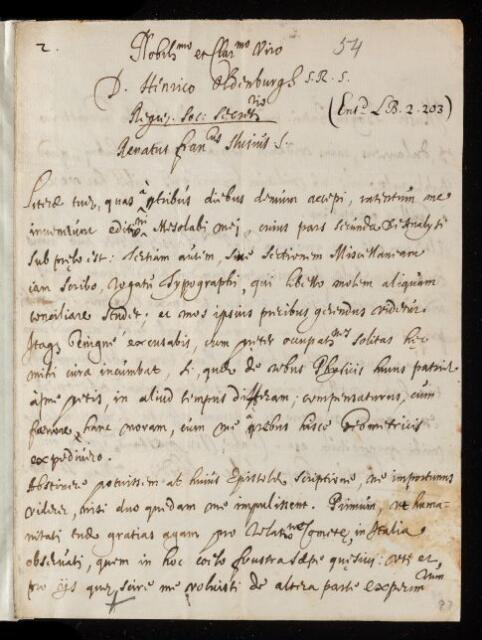 2.
54
Nobiliss.mo et Clar.mo Viro
D. Henrico Oldenburgh S.R.S.
Regiæ. Soc: Secret.rio
(Ent.d L.B. 2. 203)
Renatus Fran.cus Slusius S.
Literæ tuæ, quas à pluribus diebus demum accepi, intentum me
invenerunt editi.ni Mesolabi mei, cuius pars secunda De Analysi
sub prælo est: tertiam autem, sive sectionem Miscellaneam
iam scribo, rogatu Typographi, qui libello molem aliquam
conciliare studet; et mos ipsius precibus gerendus videtur.
Itaq; benignè excusabis, cum præter occupat.nes solitas hęc
mihi cura incumbat, si, quæ de rebus Physicis huius patriæ
à me petis, in aliud tempus differam; compensaturus, cum
fœnore, hanc moram, cum me à rebus hisce Geometricis
expediuero.
Abstinere potuissem ab huius Epistolæ scriptione, ne importunus
viderer, nisi duo quædam me impulissent. Primum, ut huma-
nitati tuæ gratias agam pro Relat.ne Cometæ, in Italia
observati, quem in hoc cœlo frustra sæpe quęsiui: uti et
pro ijs quæ scire me voluisti de altera parte experim
tum